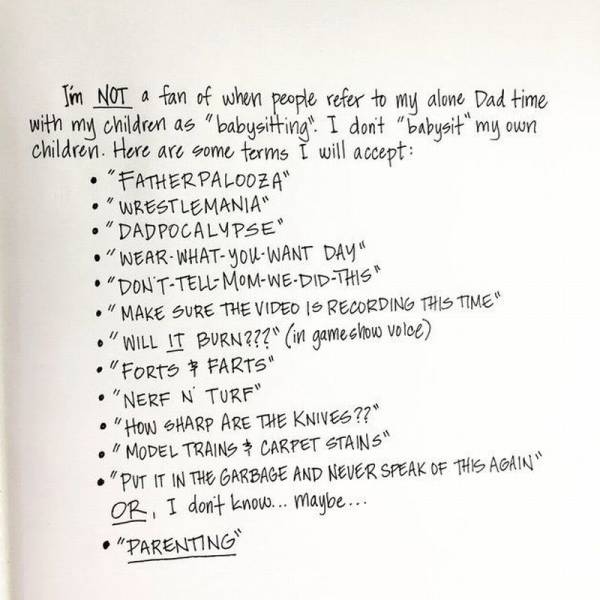 I'm NOT a fan of when people refer to my alone Dad time
with my children as "babysitting". I don't "babysit" my own
children. Here are some terms I will accept:
• "FATHERPALOOZA"
• "WRESTLEMANIA"
• "DADPOCALYPSE"
• "WEAR-WHAT-YOU-WANT DAY"
• "DON'T-TELL-MOM-WE-DID-THIS"
• "MAKE SURE THE VIDEO IS RECORDING THIS TIME"
• "WILL IT BURN???" (in gameshow voice)
• "FORTS & FARTS"
• "NERF N' TURF"
• "HOW SHARP ARE THE KNIVES??"
• "MODEL TRAINS & CARPET STAINS"
• "PUT IT IN THE GARBAGE AND NEVER SPEAK OF THIS AGAIN"
OR, I don't know... maybe...
• "PARENTING"